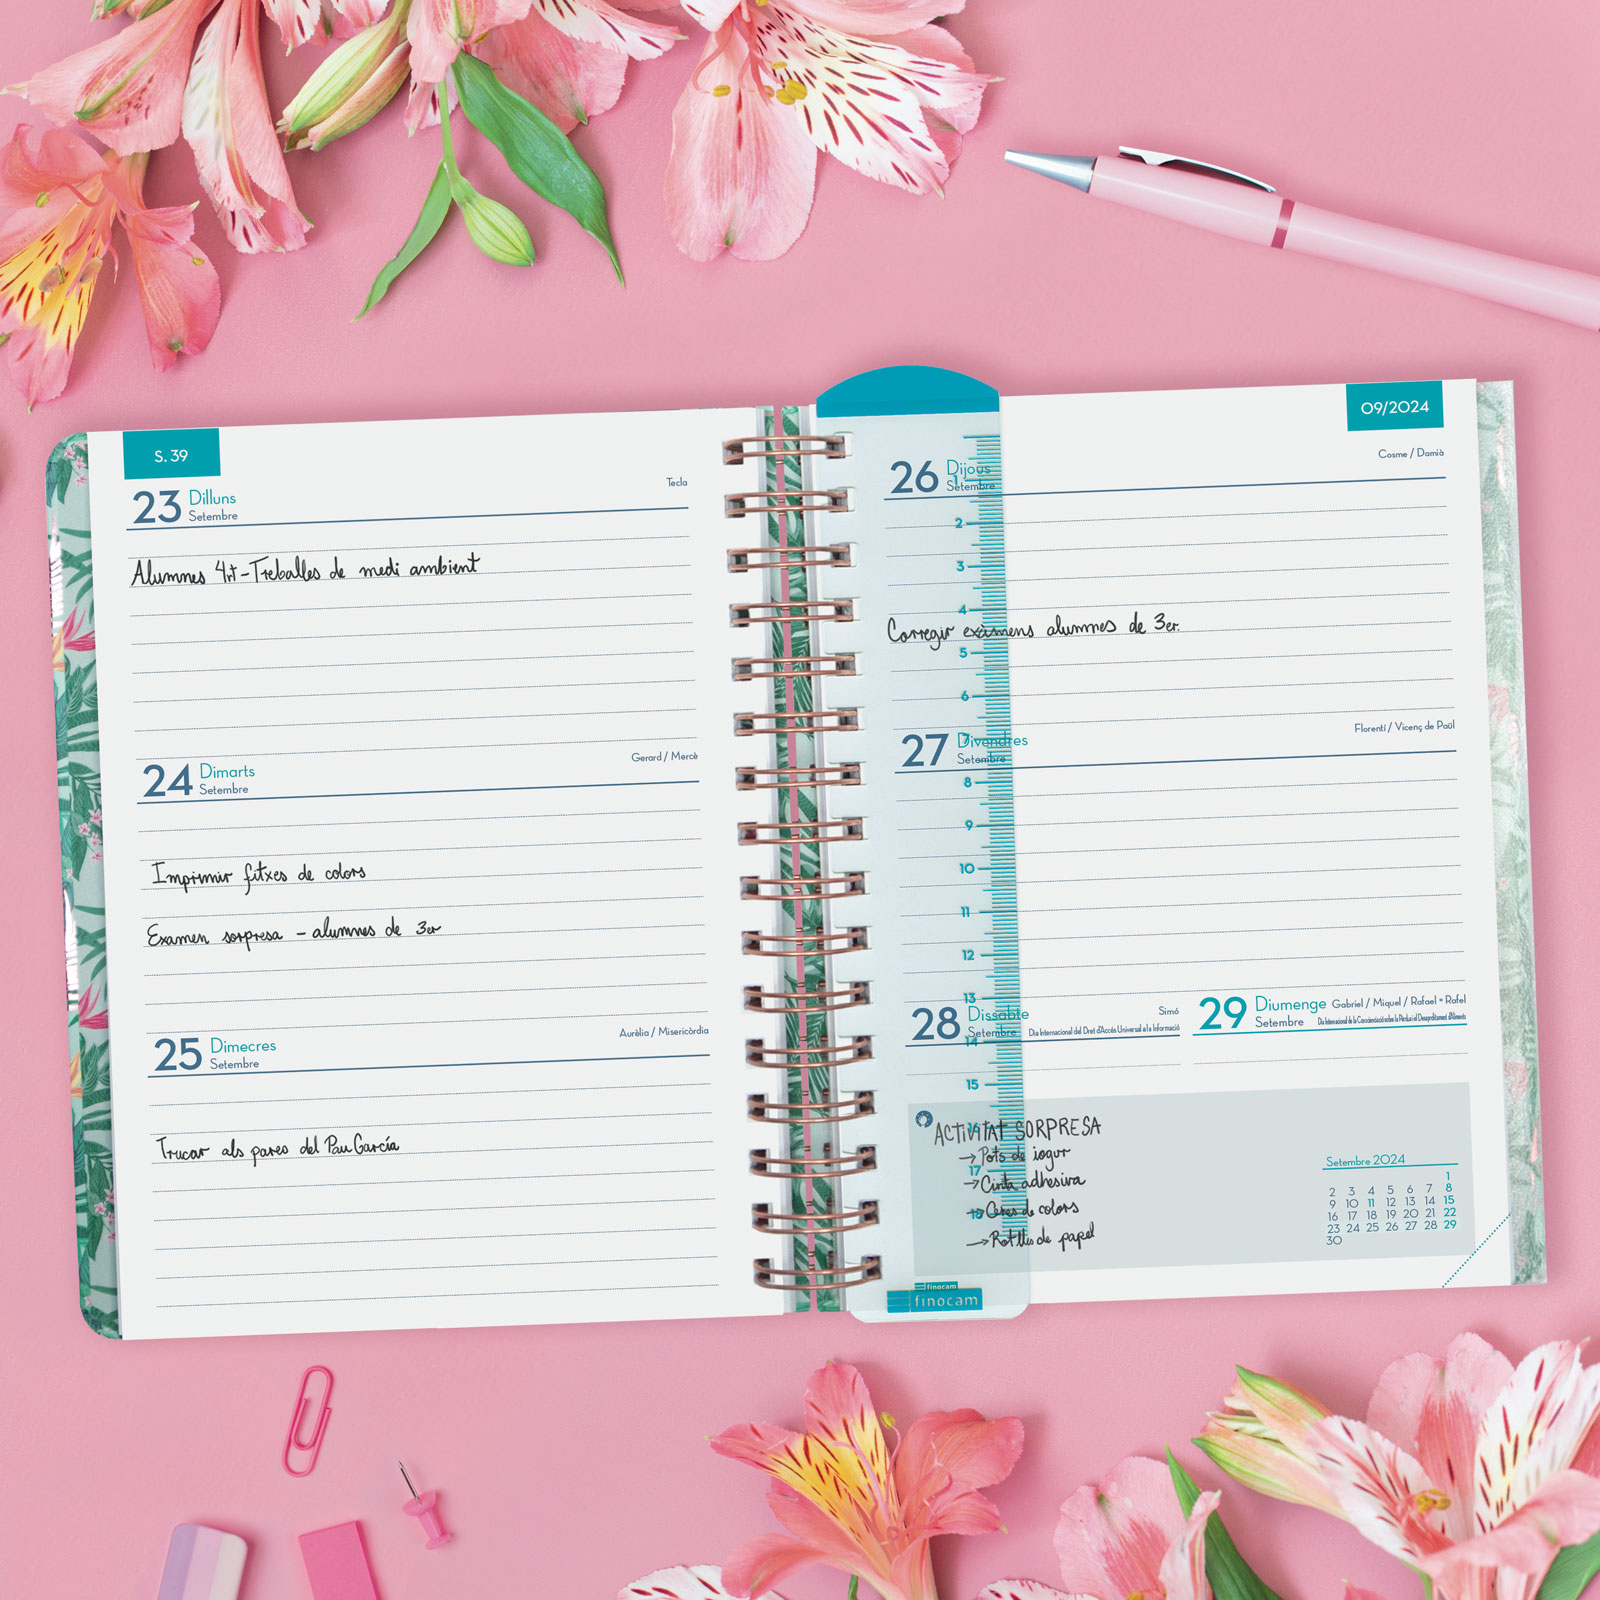 S. 39
23 Dilluns
Setembre
Tecla
Alumnes 4rt-Treballes de medi ambient
24 Dimarts
Setembre
Gerard / Mercè
Imprimir fitxes de colors
Examen sorpresa - alumnes de 3er
25 Dimecres
Setembre
Aurèlia / Misericòrdia
Trucar als pares del Pau García
09/2024
26 Dijous
Setembre
Cosme / Damià
Corregir exàmens alumnes de 3er.
27 Divendres
Setembre
Florentí / Vicenç de Paül
28 Dissabte
Setembre
Simó
Dia Internacional del Dret d'Accés Universal a la Informació
29 Diumenge
Setembre
Gabriel / Miquel / Rafael = Rafel
Dia Internacional de la Conscienciació sobre la Pèrdua i el Desaprofitament d'Aliments
ACTIVITAT SORPRESA
→Pots de iogur
→Cinta adhesiva
→Ceres de colors
→Rotlles de papel
Setembre 2024
1
2 3 4 5 6 7 8
9 10 11 12 13 14 15
16 17 18 19 20 21 22
23 24 25 26 27 28 29
30
1
2
3
4
5
6
7
8
9
10
11
12
13
14
15
16
17
18
finocam
finocam